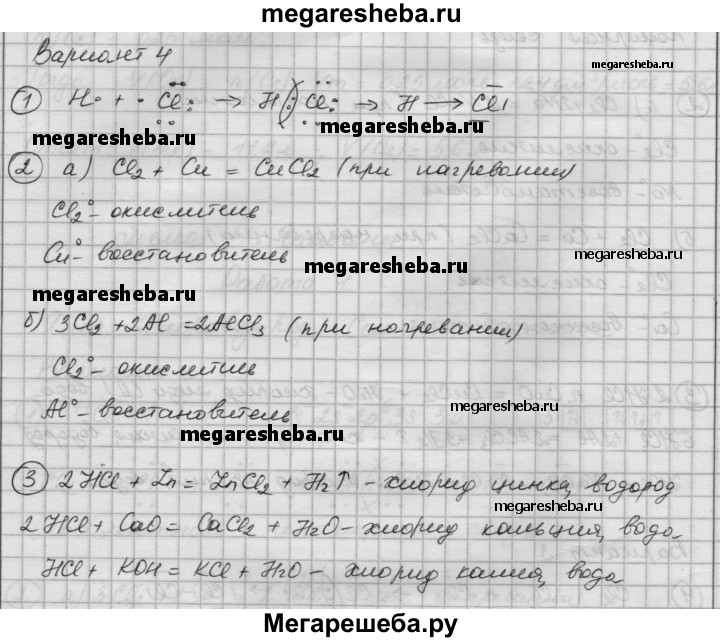 megaresheba.ru
Вариант 4
megaresheba.ru
① H• + •Cl: → H(:)Cl: → H → Cl
megaresheba.ru megaresheba.ru
② а) Cl₂ + Cu = CuCl₂ (при нагревании)
Cl₂⁰ - окислитель
Cu⁰ - восстановитель
megaresheba.ru megaresheba.ru
megaresheba.ru
б) 3Cl₂ + 2Al = 2AlCl₃ (при нагревании)
Cl₂⁰ - окислитель
Al⁰ - восстановитель
megaresheba.ru
megaresheba.ru
③ 2HCl + Zn = ZnCl₂ + H₂↑ - хлорид цинка, водород
megaresheba.ru
2HCl + CaO = CaCl₂ + H₂O - хлорид кальция, вода
HCl + KOH = KCl + H₂O - хлорид калия, вода
Мегарешеба.ру